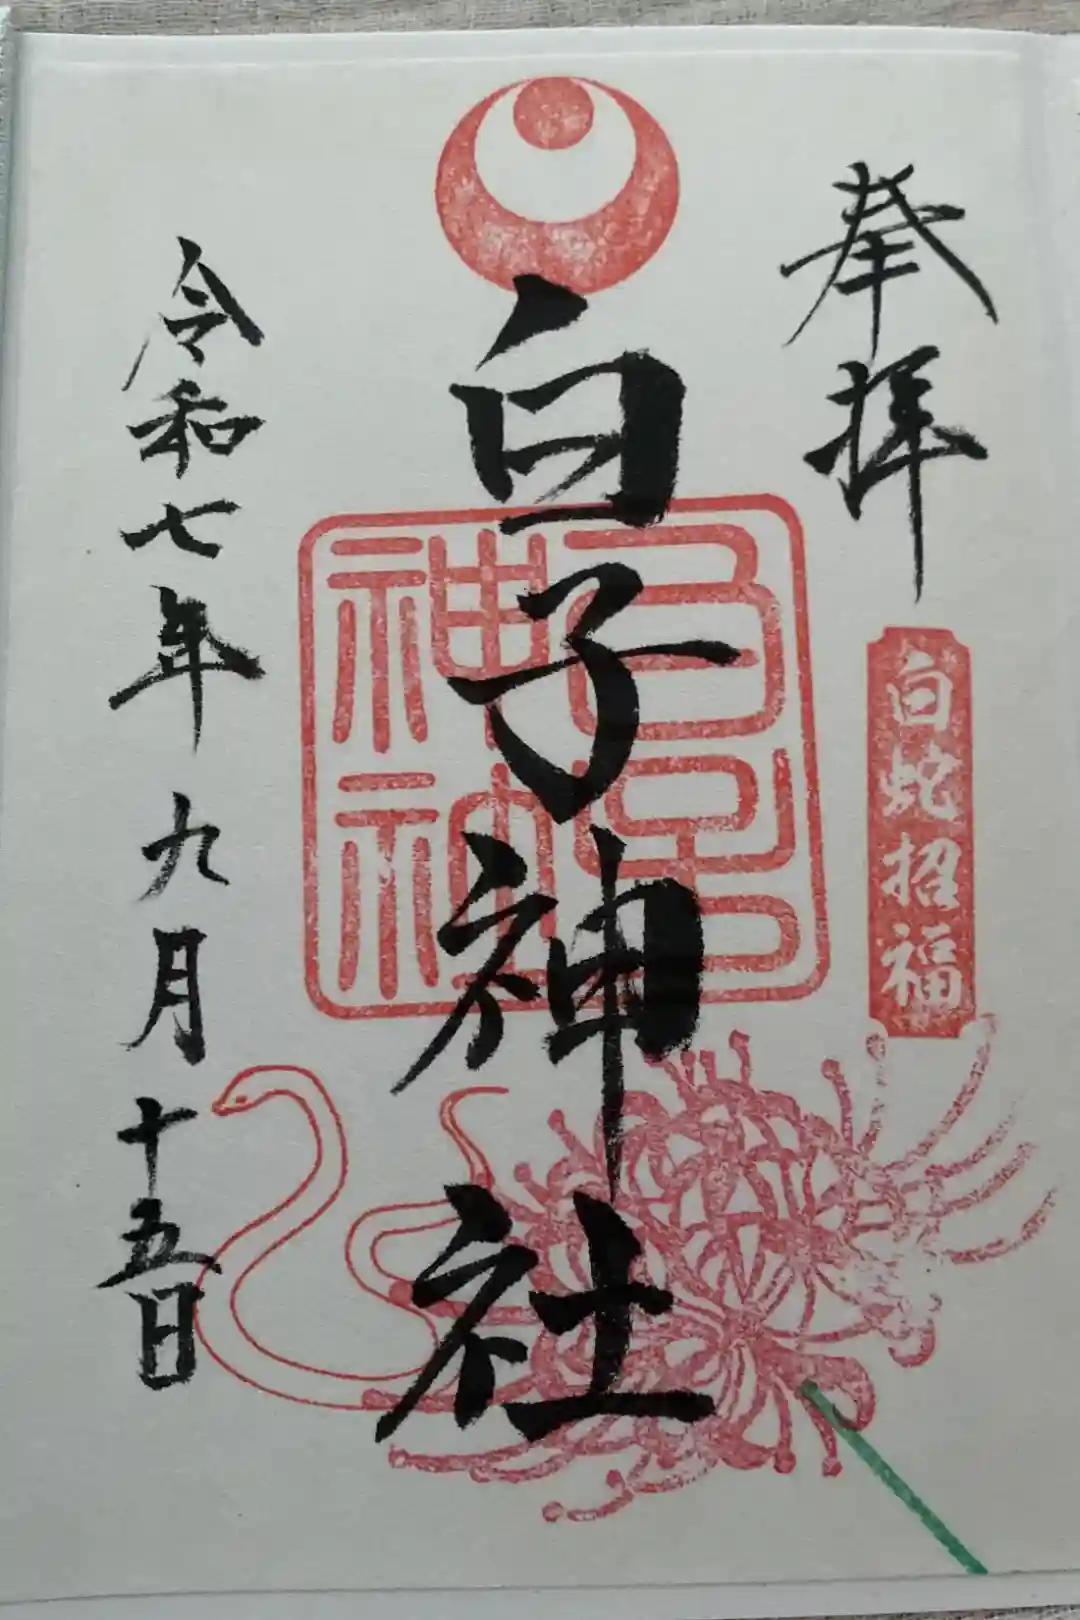 奉拝
白蛇招福
白子神社
令和七年九月十五日